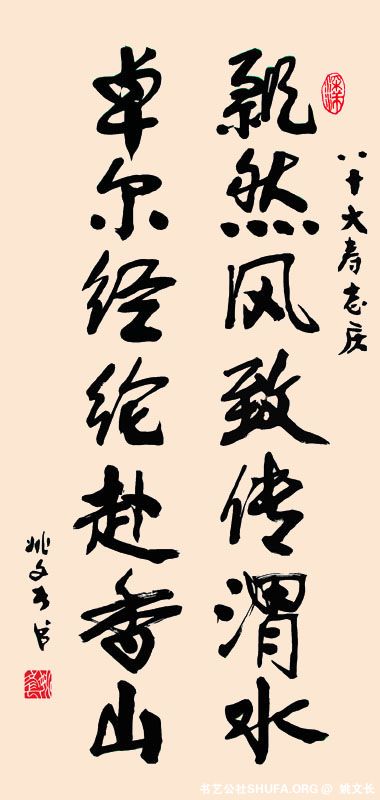 八十大寿志庆
飘然风致传渭水
卓尔经纶赴香山
姚文长书
书艺公社SHUFA.ORG @ 姚文长